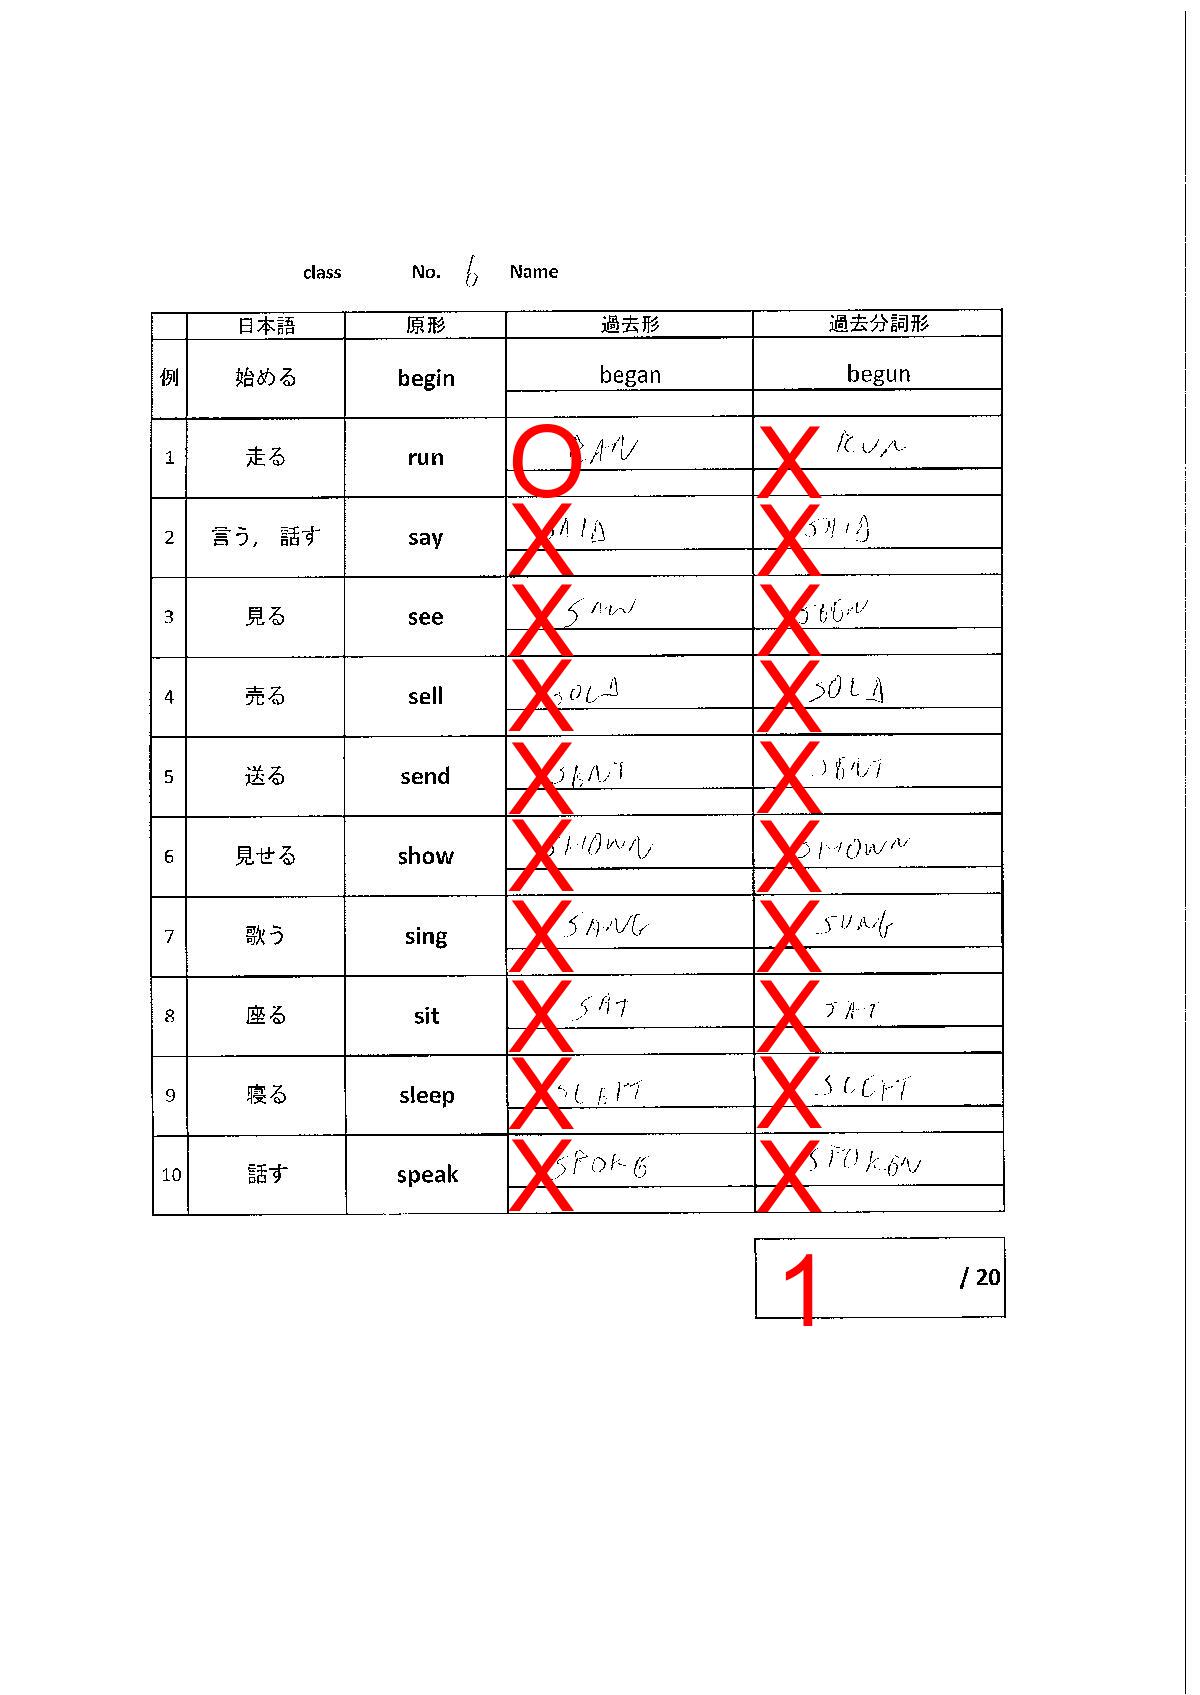 class No. 6 Name
日本語 原形 過去形 過去分詞形
例 始める begin began begun
1 走る run O RAN X RUN
2 言う, 話す say X SAID X SAID
3 見る see X SAW X SEEN
4 売る sell X SOLD X SOLD
5 送る send X SENT X SENT
6 見せる show X SHOWN X SHOWN
7 歌う sing X SANG X SUNG
8 座る sit X SAT X SAT
9 寝る sleep X SLEPT X SLEPT
10 話す speak X SPOKE X SPOKEN
1 / 20